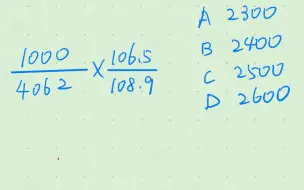 1000/4062 × 106.5/108.9
A 2300
B 2400
C 2500
D 2600